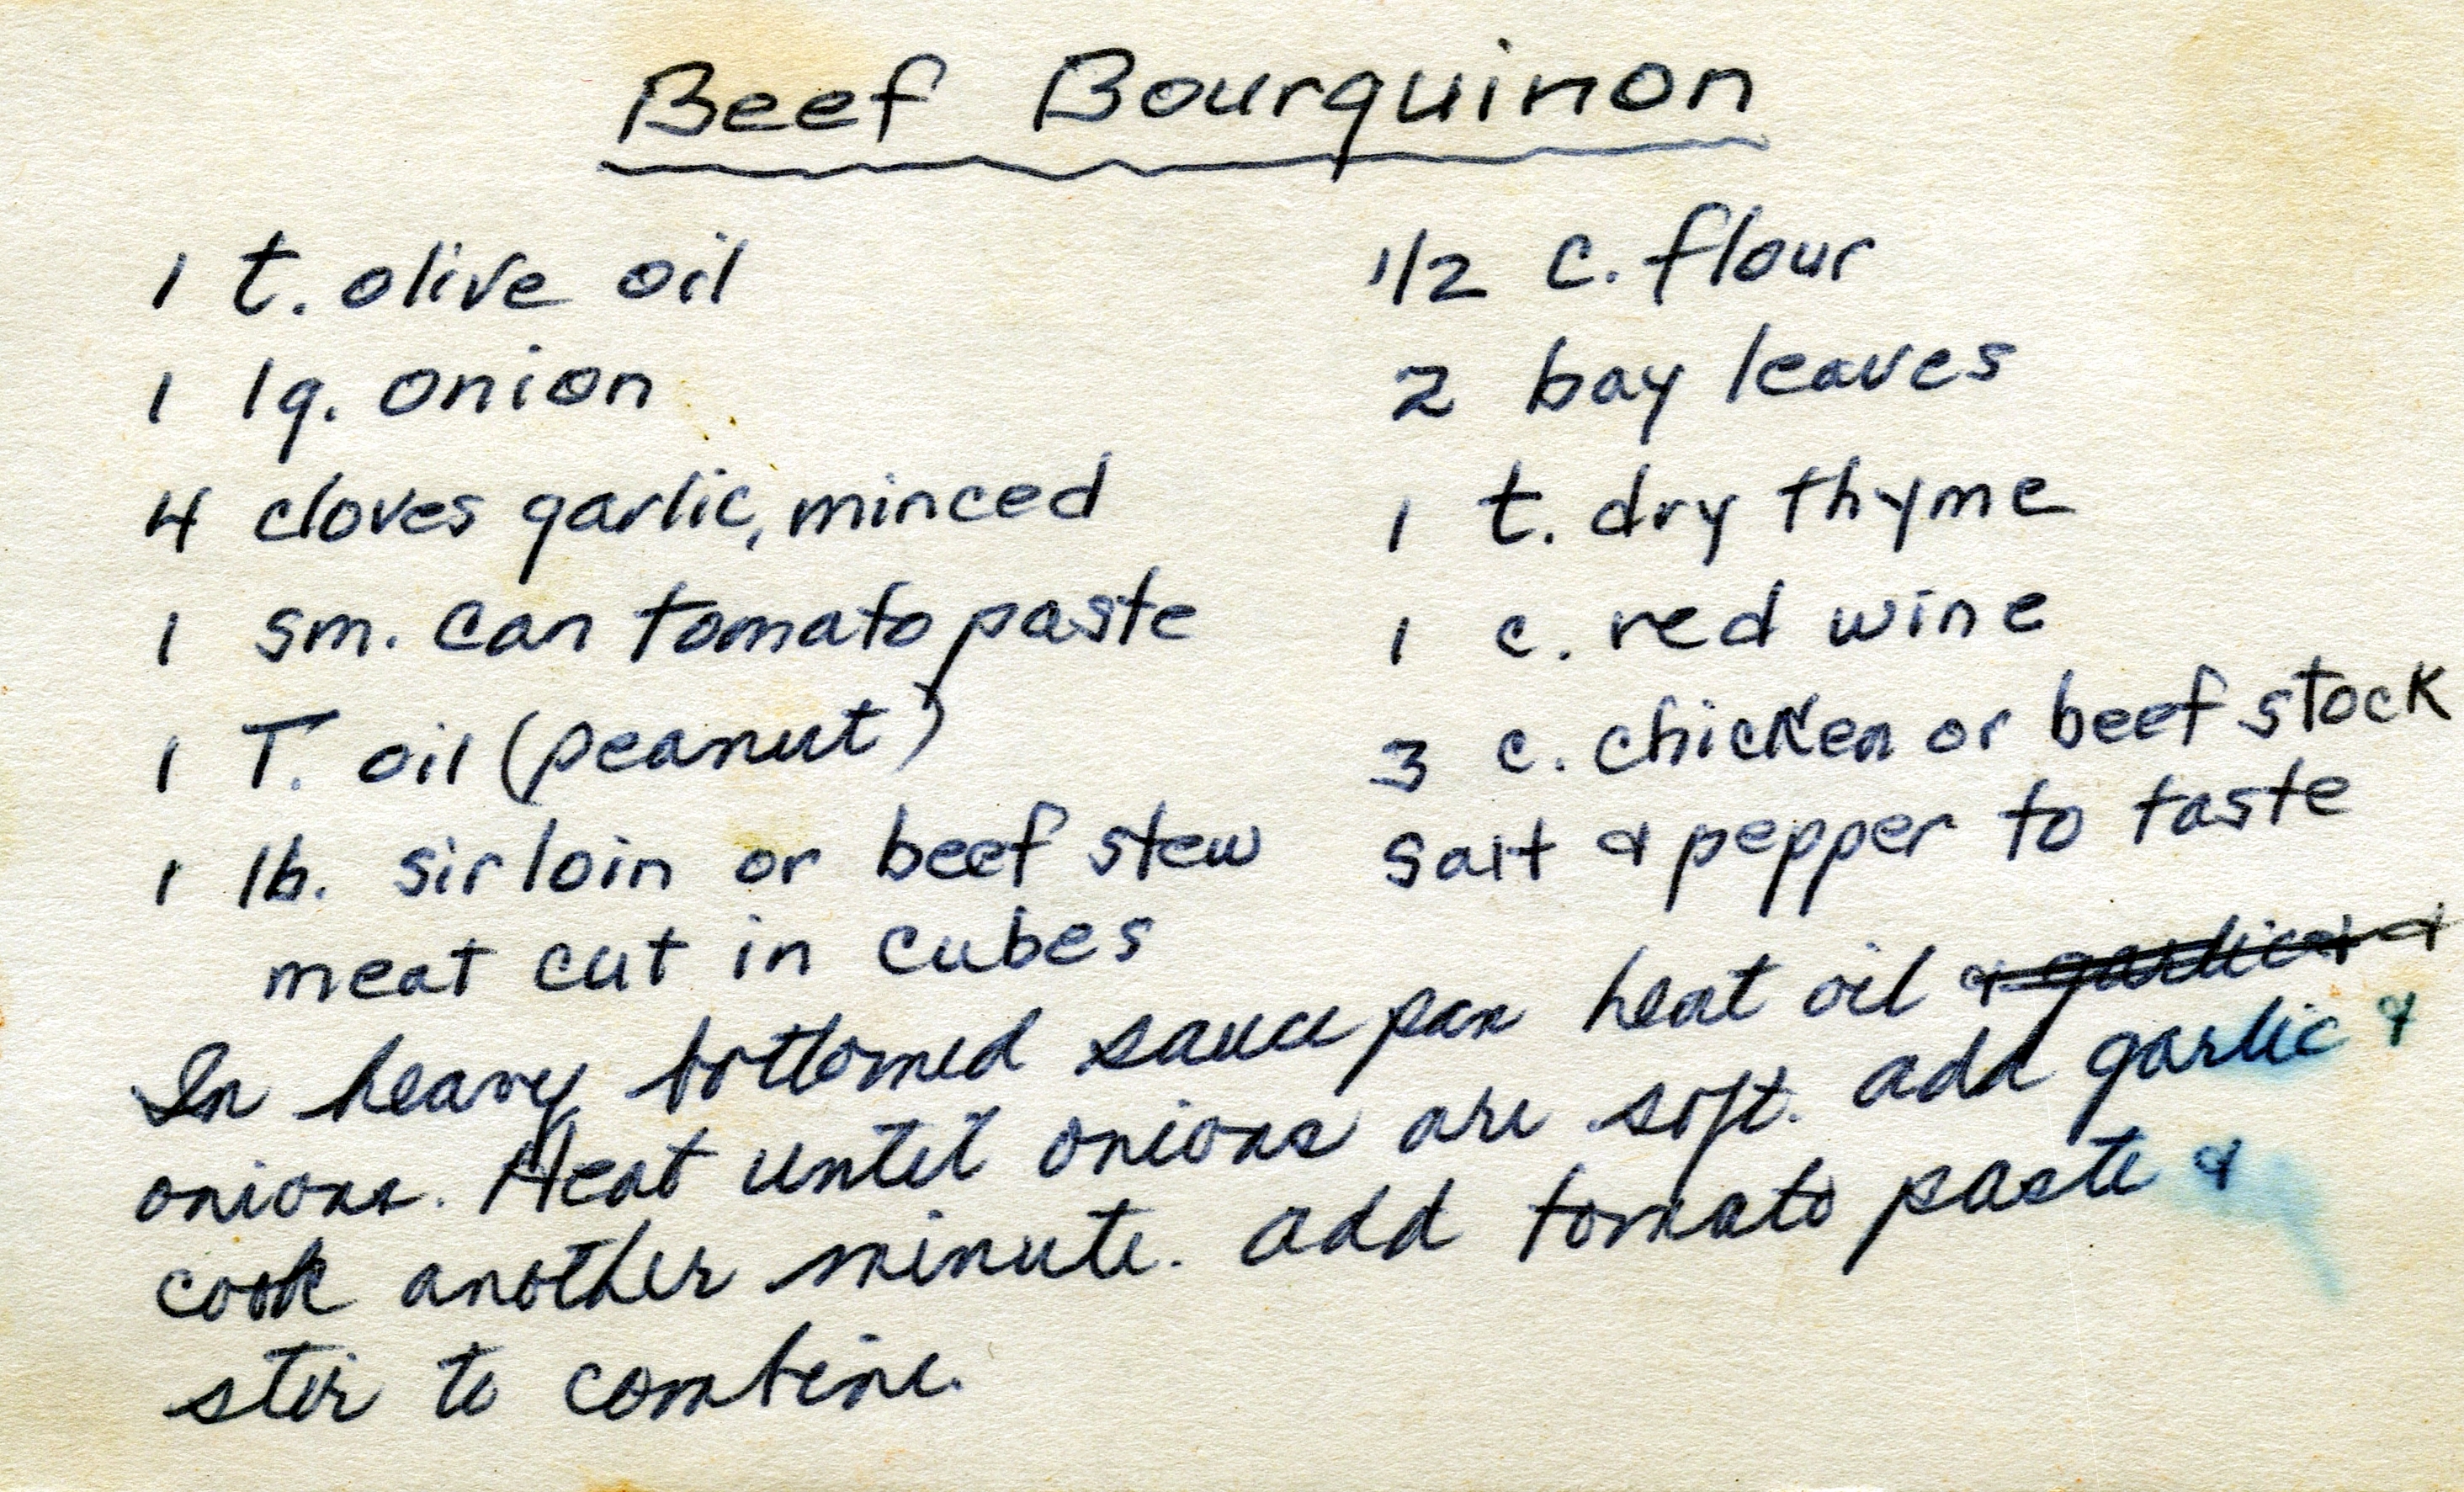 Beef Bourquinon
1 t. olive oil
1 lg. onion
4 cloves garlic, minced
1 sm. can tomato paste
1 T. oil (peanut)
1 lb. sirloin or beef stew
meat cut in cubes
1/2 c. flour
2 bay leaves
1 t. dry thyme
1 c. red wine
3 c. chicken or beef stock
salt & pepper to taste
In heavy bottomed sauce pan heat oil & garlic & &
onions. Heat until onions are soft. add garlic &
cook another minute. add tomato paste &
stir to combine.